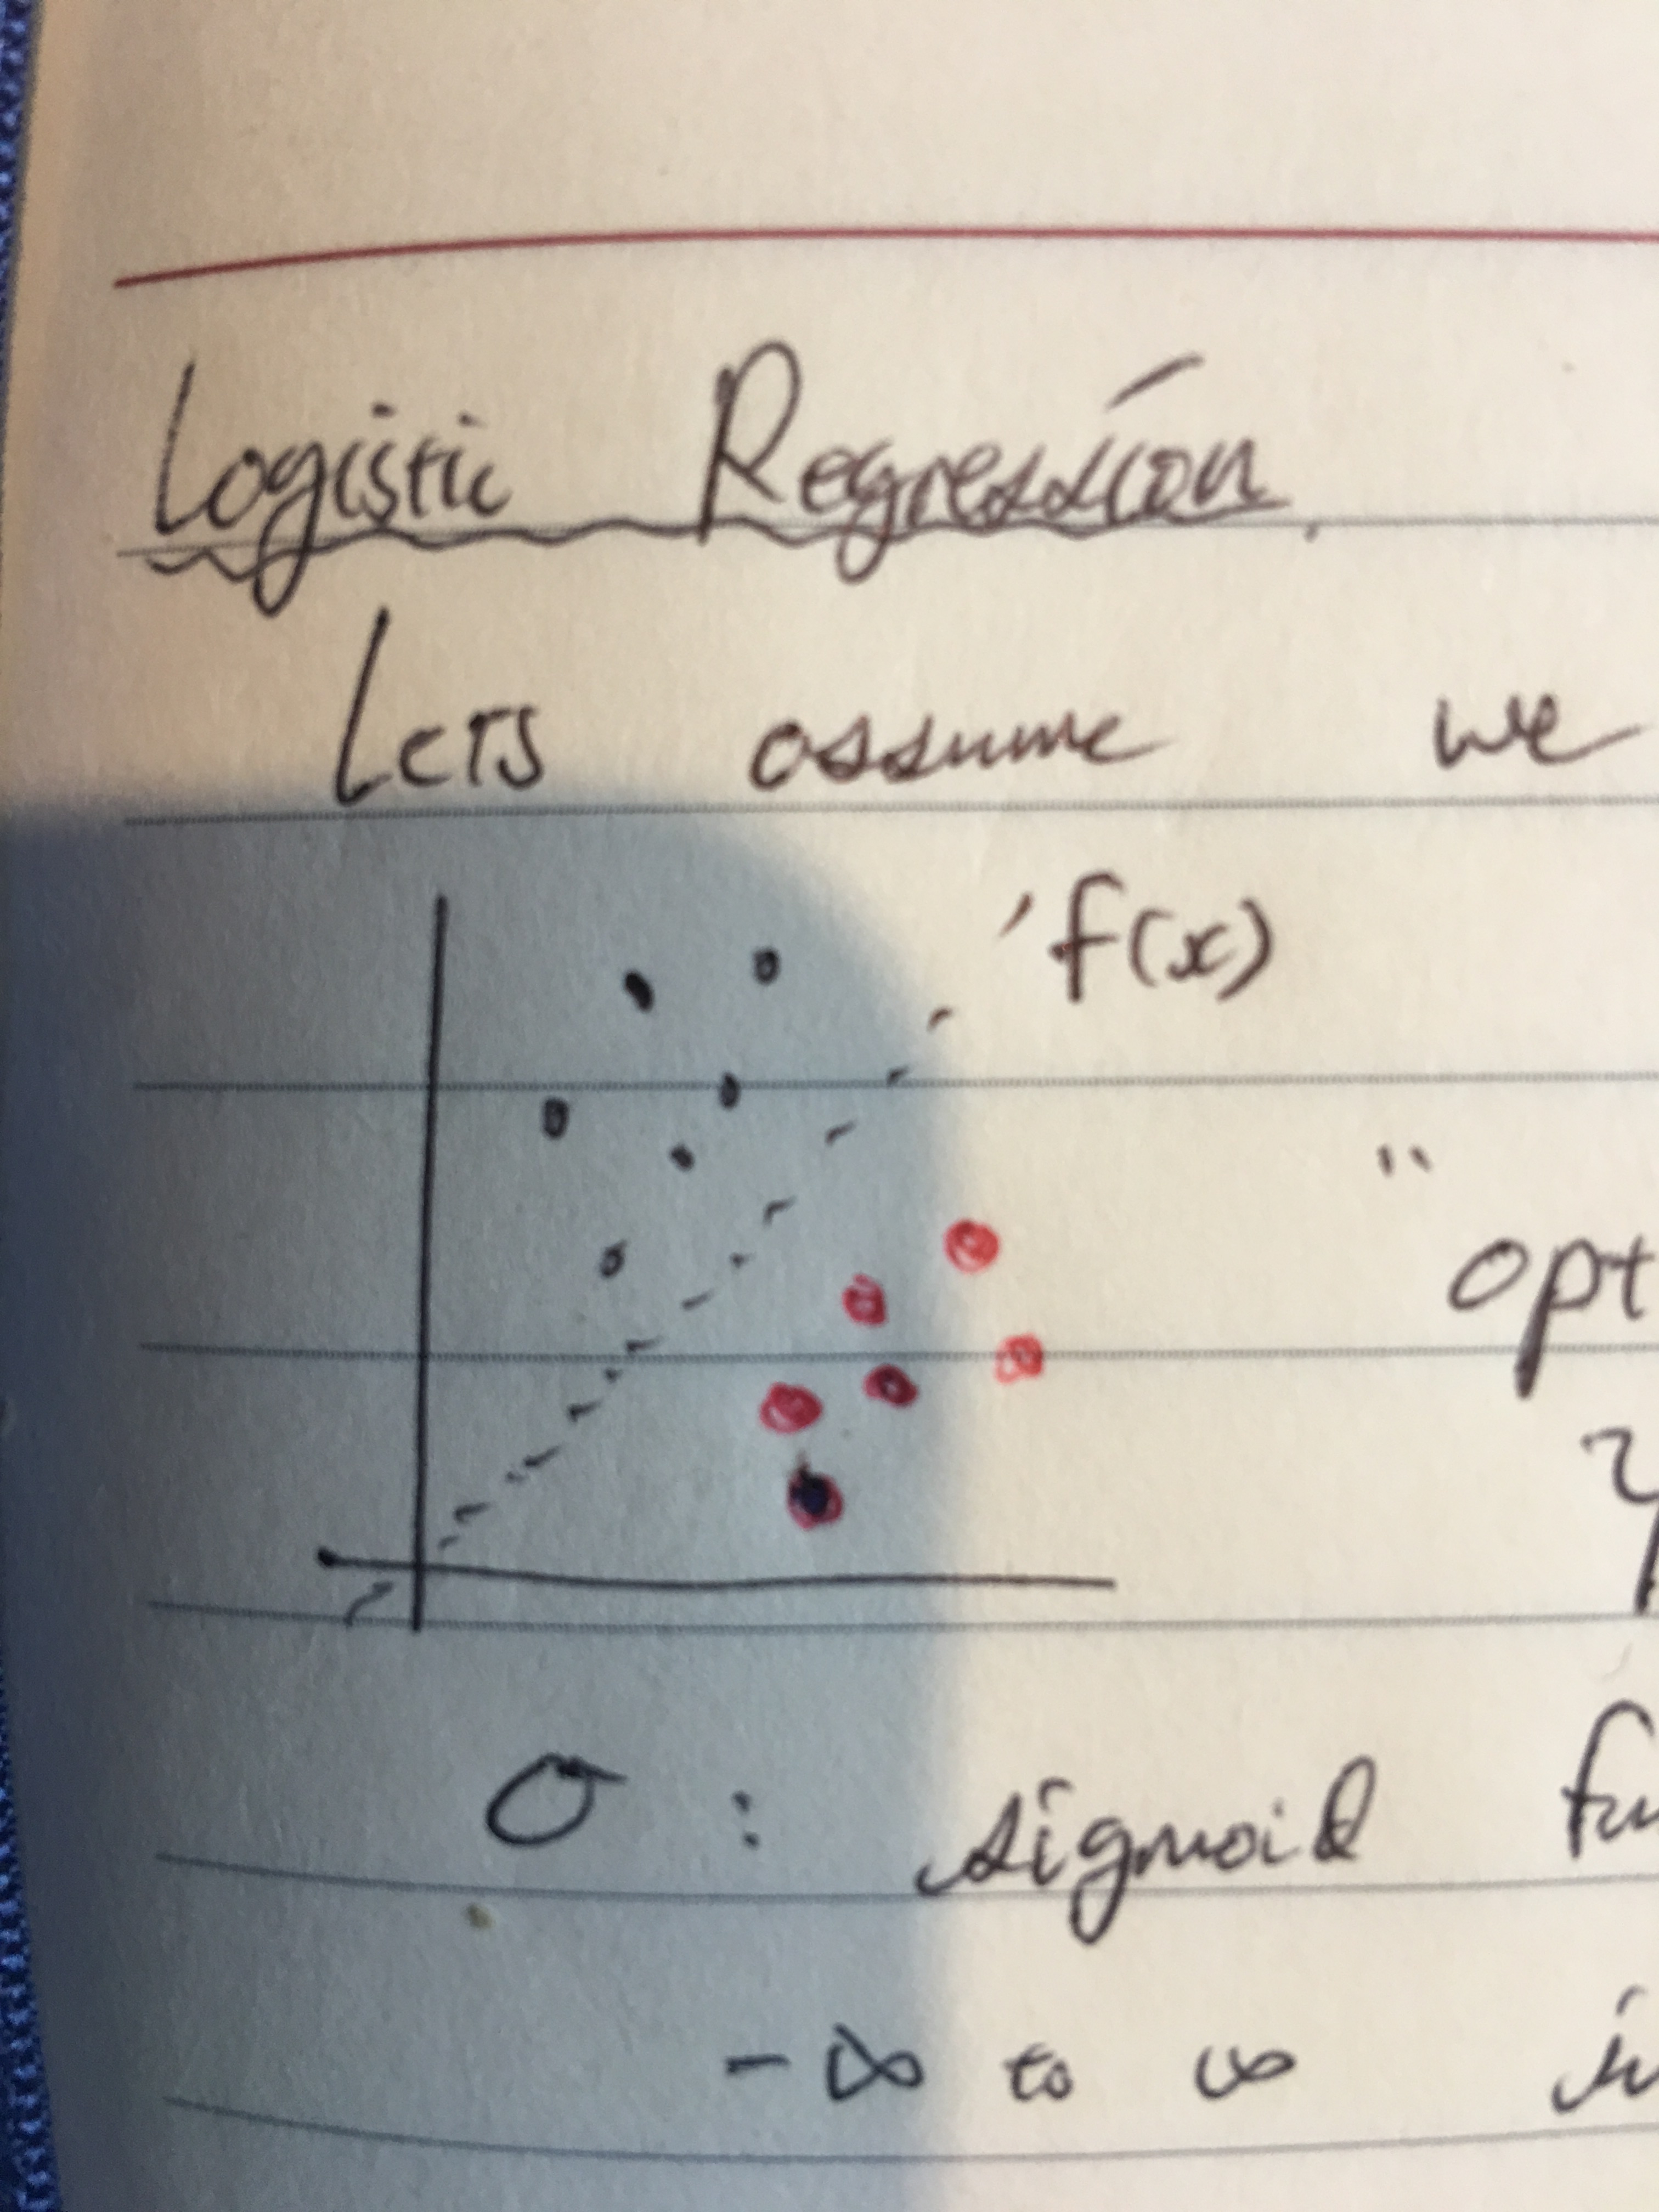 Logistic Regression.
Lets assume we
f(x)
"
opt
σ : sigmoid fu
-∞ to ∞ in